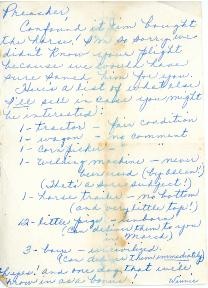 Preacher,
Confound it Jim bought
the horse! I'm so sorry we
didn't know your plight
because we could have
sure saved him for you.
Here's a list of what else
I'll sell in case you might
be interested!
1 - tractor - fair condition
1 - wagon - no comment
1 - corn picker -
1 - welding machine - never
been used (by Glenn!)
(That's a sore subject!)
1 - horse trailer - no bottom
(and very little top!)
12 - little pigs - unborn
(Can deliver them to you
in March)
3 - boys - uncivilized.
(Can deliver them immediately)
and one dog that we'll
throw in as a bonus!
Winnie